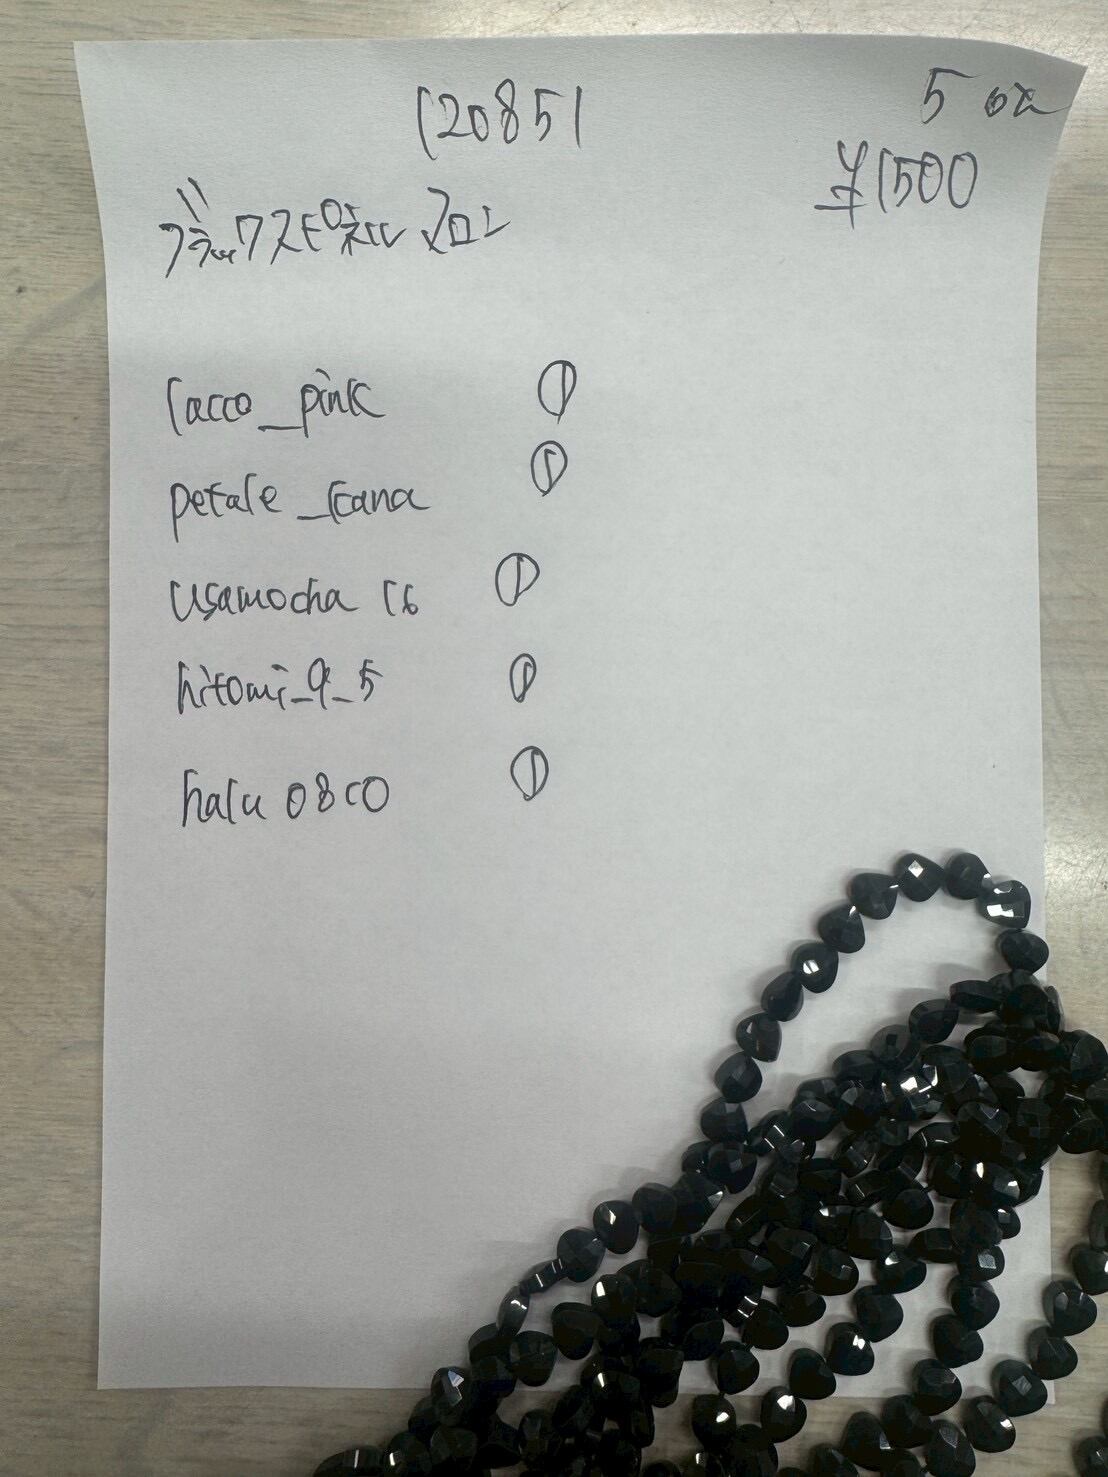 120851
5 oz
¥1500
ブラックスピネル マロン
lacco_pink ①
petale_kana ①
usamocha 16 ①
hitomi_9_5 ①
halu 0810 ①